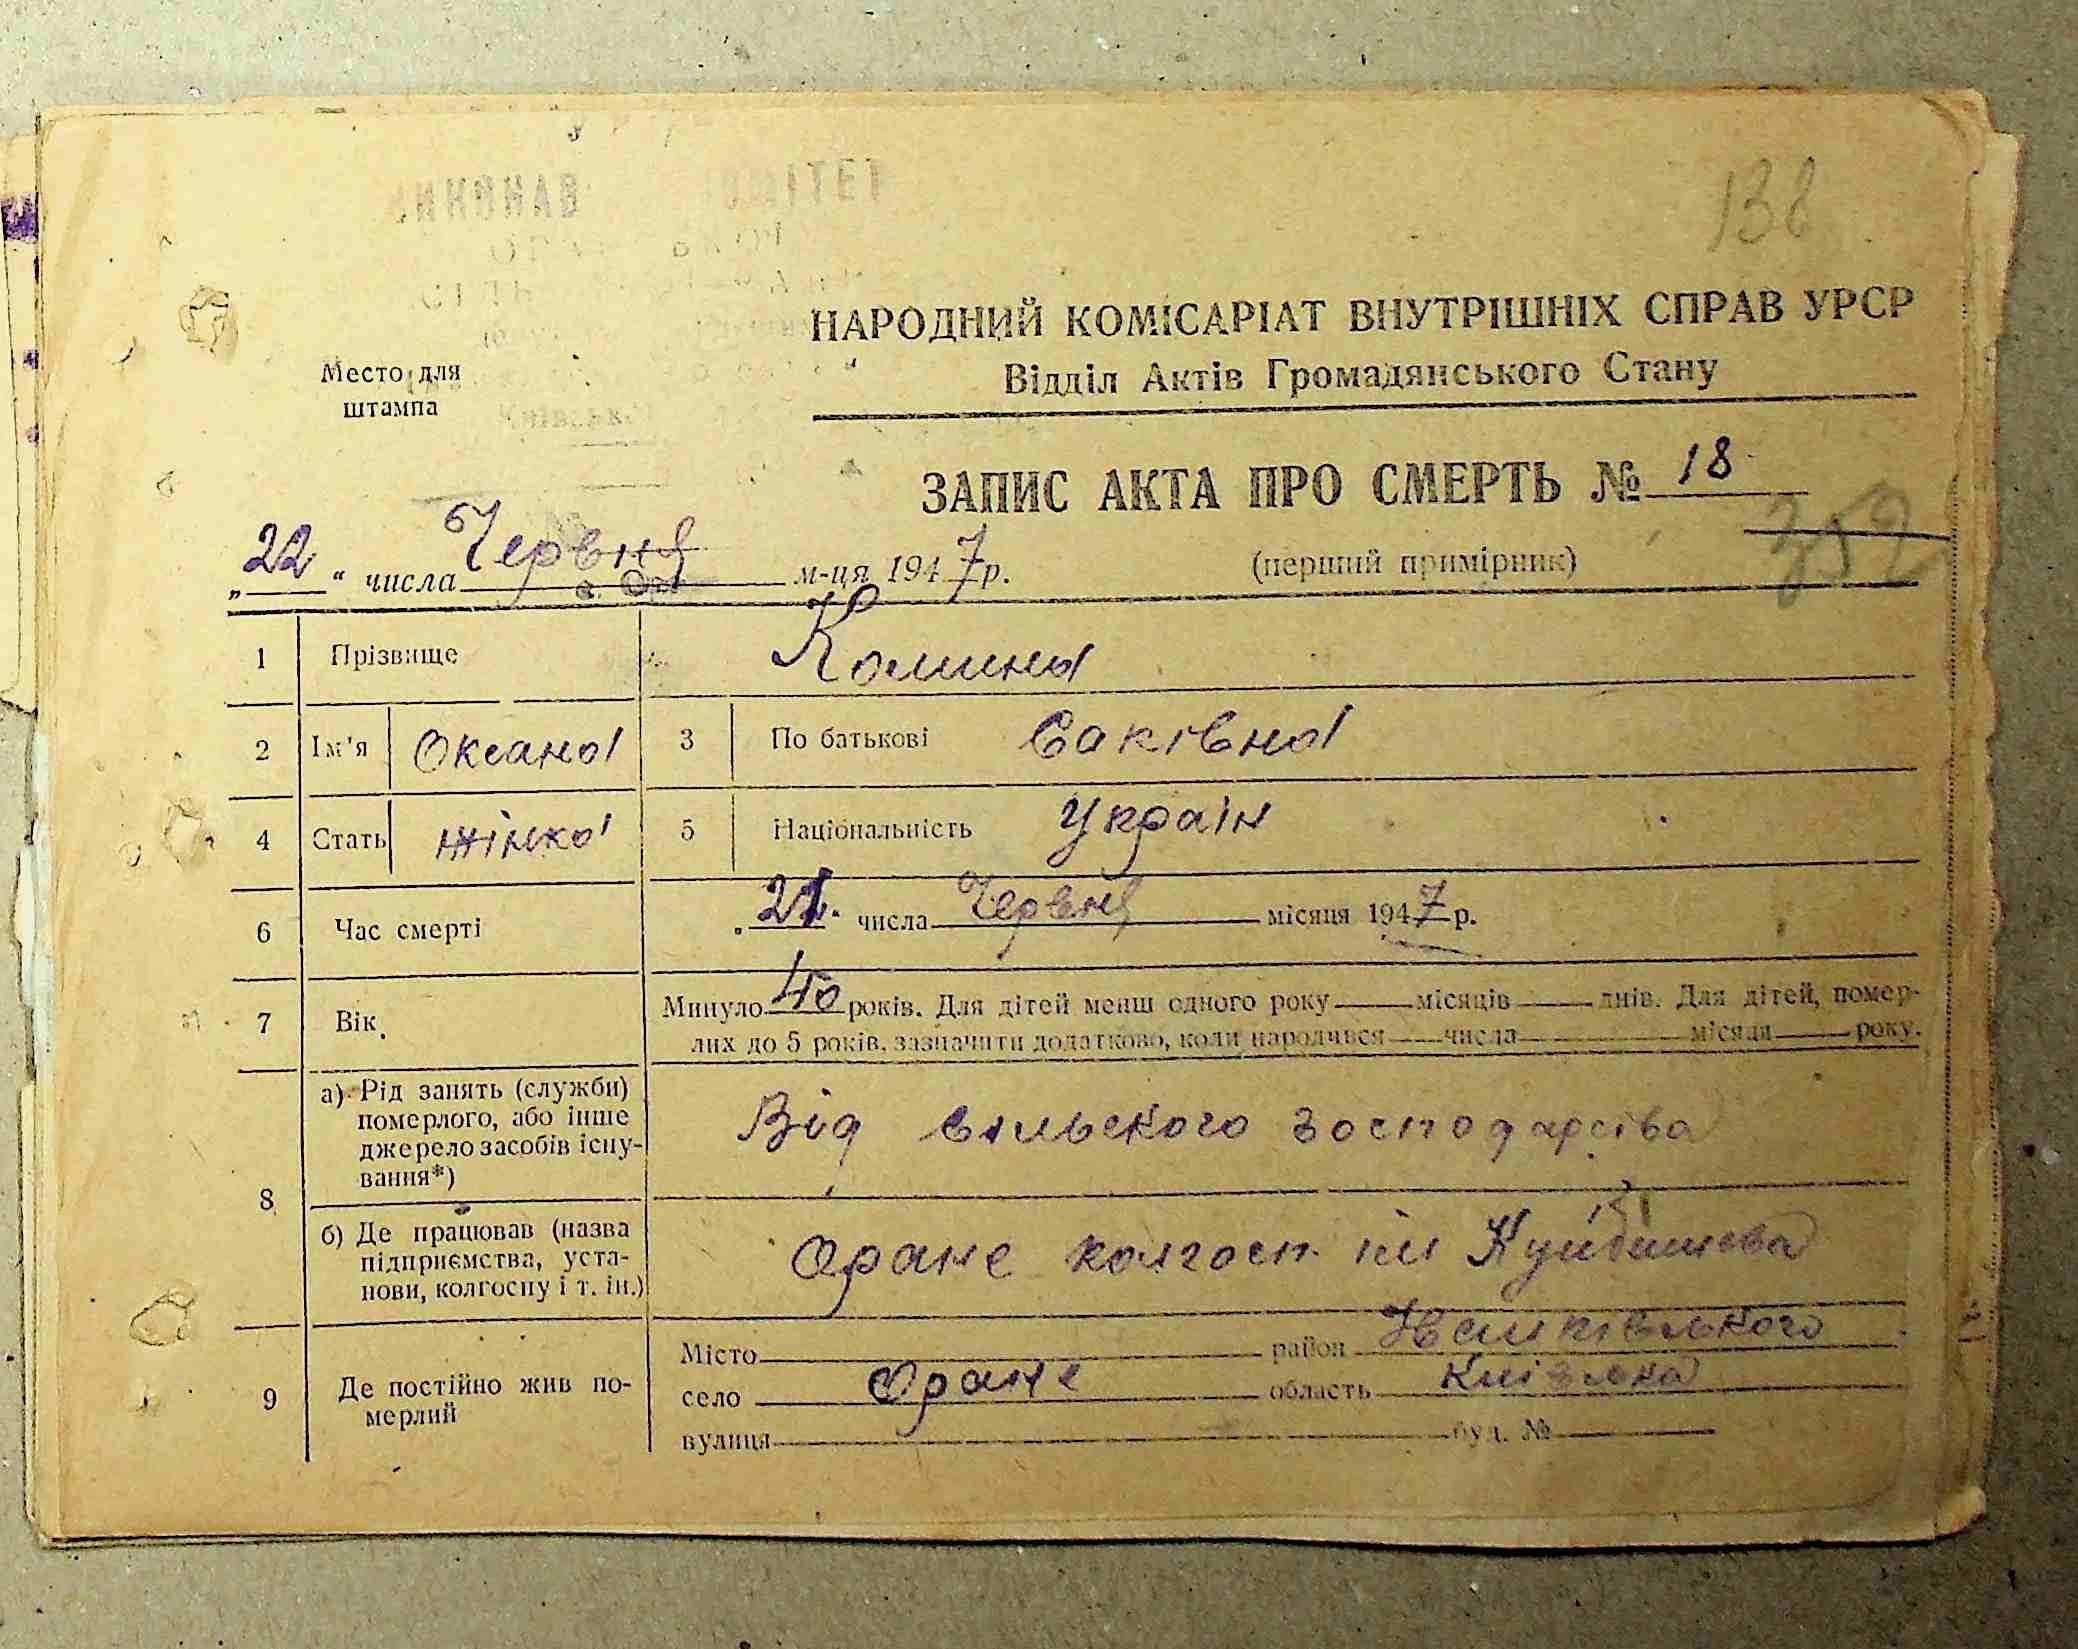 138
НАРОДНИЙ КОМІСАРІАТ ВНУТРІШНІХ СПРАВ УРСР
Место для штампа
Відділ Актів Громадянського Стану
ЗАПИС АКТА ПРО СМЕРТЬ № 18
„22“ числа Червня м-ця 1947 р. (перший примірник)
352
1 Прізвище Комина
2 Ім'я Оксана 3 По батькові Саківна
4 Стать жінка 5 Національність Україн
6 Час смерті „21“ числа Червня місяця 1947 р.
7 Вік. Минуло 40 років. Для дітей менш одного року місяців днів. Для дітей, помер-
лих до 5 років, зазначити додатково, коли народився числа місяця року.
8 а) Рід занять (служби) померлого, або інше джерело засобів існу-вання*) Від сільського господарства
б) Де працював (назва підприємства, уста-нови, колгоспу і т. ін.) Оране колгосп ім Куйбишева
9 Де постійно жив по-мерлий
Місто район Іванківського
село Оране область Київська
вулиця буд. №